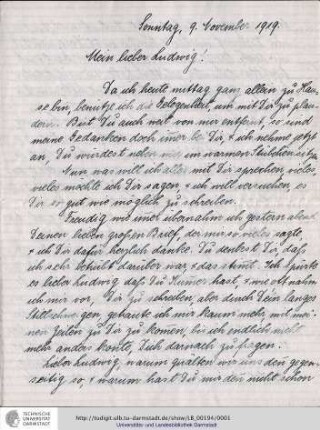 Sonntag, 9. November 1919.
Mein lieber Ludwig!
Da ich heute mittag ganz allein zu Hau-
se bin, benütze ich die Gelegenheit, um mit Dir zu plau-
dern. Bist Du auch weit von mir entfernt, so sind
meine Gedanken doch im̅er bei Dir, & ich nehme jetzt
an, Du würdest neben mir im warmen Stübchen sitzen.
Nun was will ich alles mit Dir sprechen, vieles,
vieles möchte ich Dir sagen, & ich will versuchen, es
Dir so gut wie möglich zu schreiben.
Freudig wie im̅er übernahm ich gestern abend
Deinen lieben großen Brief, der mir so vieles sagte,
& ich Dir dafür herzlich danke. Du denkst Dir, daß
ich sehr betrübt darüber war & das stimmt. Ich spürte
es lieber Ludwig daß Du Kum̅er hast, & wie oft nahm
ich mir vor, Dir zu schreiben, aber durch Dein langes
Stillschweigen, getraute ich mir kaum mehr, mit mei-
nen Zeilen zu Dir zu kom̅en, bis ich endlich nicht
mehr anders konnte, Dich darnach zu fragen.
Lieber Ludwig, warum quälten wir uns den gegen-
seitig so, & warum hast Du mir den nicht schon
TECHNISCHE
UNIVERSITÄT
DARMSTADT
http://tudigit.ulb.tu-darmstadt.de/show/LB_00194/0001
Universitäts- und Landesbibliothek Darmstadt